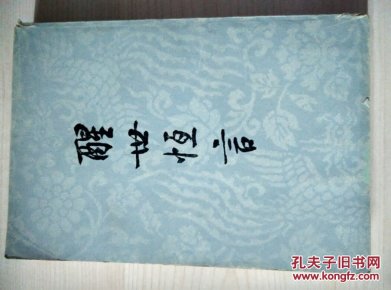 醒世恒言
孔夫子旧书网
www.kongfz.com